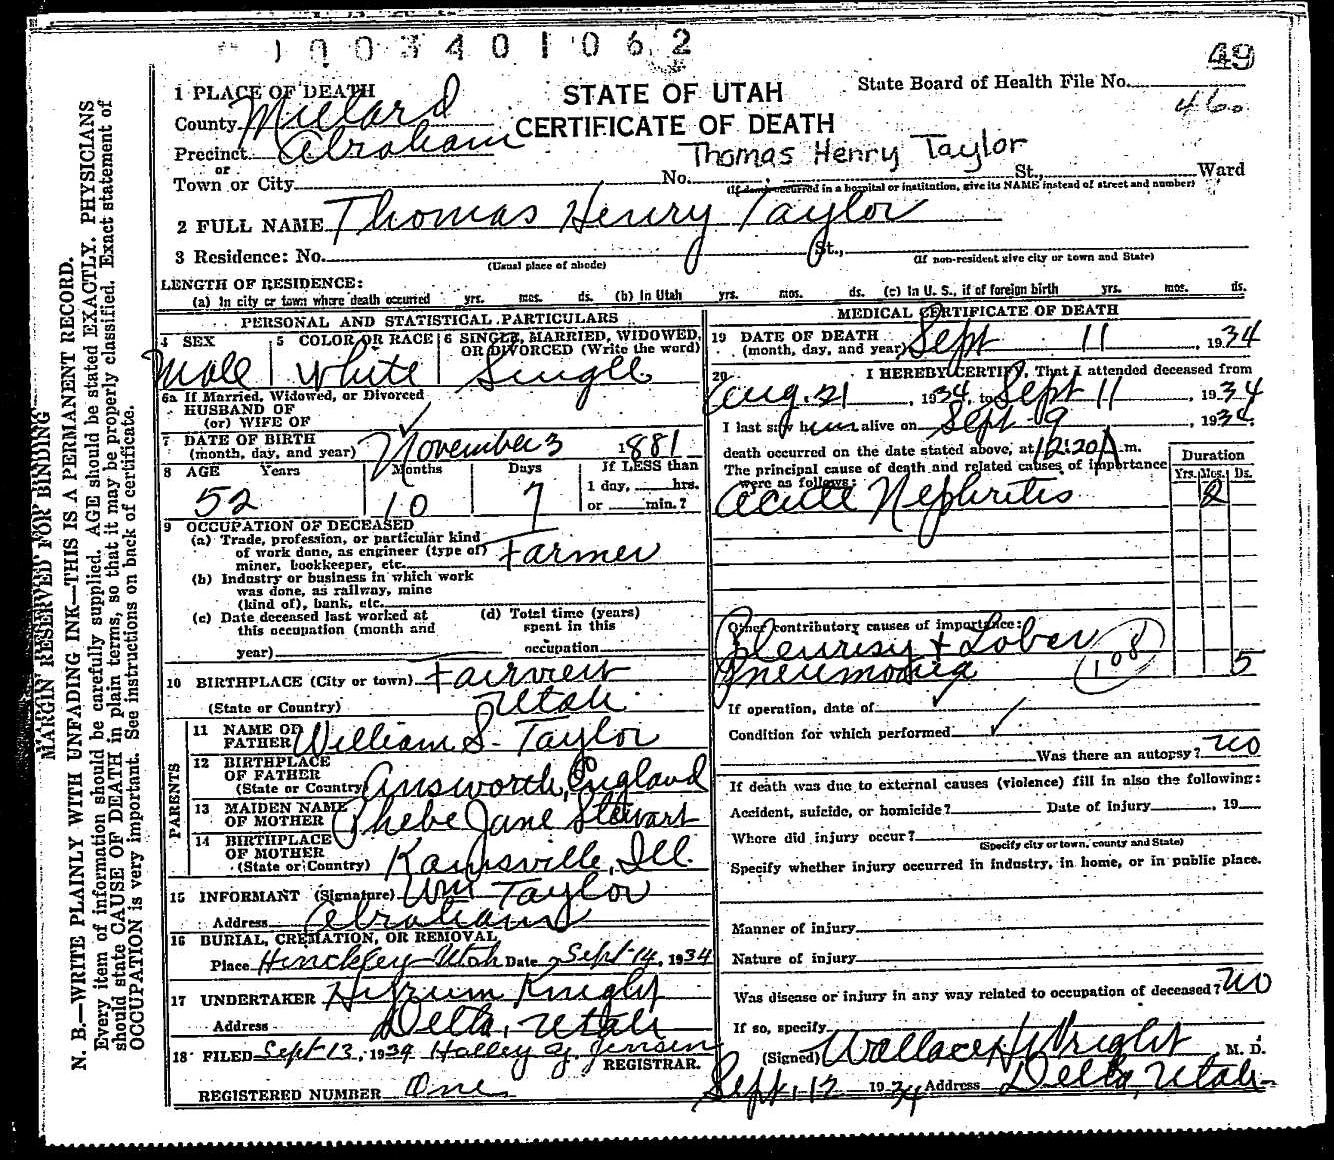 1003401062
49
1 PLACE OF DEATH
STATE OF UTAH
State Board of Health File No.
460
County Millard
CERTIFICATE OF DEATH
Precinct Abraham
Thomas Henry Taylor
or
Town or City No. St., Ward
(If death occurred in a hospital or institution, give its NAME instead of street and number)
2 FULL NAME Thomas Henry Taylor
3 Residence: No. St.,
(Usual place of abode) (If non-resident give city or town and State)
LENGTH OF RESIDENCE:
(a) In city or town where death occurred yrs. mos. ds. (b) In Utah yrs. mos. ds. (c) In U. S., if of foreign birth yrs. mos. ds.
PERSONAL AND STATISTICAL PARTICULARS
4 SEX
Male
5 COLOR OR RACE
White
6 SINGLE, MARRIED, WIDOWED, OR DIVORCED (Write the word)
Single
6a If Married, Widowed, or Divorced
HUSBAND OF
(or) WIFE OF
7 DATE OF BIRTH
(month, day, and year) November 3 1881
8 AGE Years Months Days If LESS than
1 day, hrs.
52 10 7 or min.?
9 OCCUPATION OF DECEASED
(a) Trade, profession, or particular kind
of work done, as engineer (type of)
miner, bookkeeper, etc. Farmer
(b) Industry or business in which work
was done, as railway, mine
(kind of), bank, etc.
(c) Date deceased last worked at
this occupation (month and
year)
(d) Total time (years)
spent in this
occupation
10 BIRTHPLACE (City or town) Fairview
(State or Country) Utah
PARENTS
11 NAME OF
FATHER William S. Taylor
12 BIRTHPLACE
OF FATHER
(State or Country) Answorth, England
13 MAIDEN NAME
OF MOTHER Phebe Jane Stewart
14 BIRTHPLACE
OF MOTHER
(State or Country) Kanisville, Ill.
15 INFORMANT (Signature) Wm Taylor
Address Abraham
16 BURIAL, CREMATION, OR REMOVAL
Place Hinckley Utah Date Sept 14, 1934
17 UNDERTAKER Hyrum Knight
Address Delta, Utah
18 FILED Sept 13, 1934 Halley J. Jensen
REGISTRAR.
REGISTERED NUMBER One
MEDICAL CERTIFICATE OF DEATH
19 DATE OF DEATH
(month, day, and year) Sept 11, 1934
20 I HEREBY CERTIFY, That I attended deceased from
Aug. 21, 1934, to Sept 11, 1934
I last saw him alive on Sept 9, 1934
death occurred on the date stated above, at 12:20 A m.
The principal cause of death and related causes of importance
were as follows:
Duration
Yrs. Mos. Ds.
Acute Nephritis 2
Other contributory causes of importance:
Pleurisy & Lober
Pneumonia 108 5
If operation, date of
Condition for which performed
Was there an autopsy? no
If death was due to external causes (violence) fill in also the following:
Accident, suicide, or homicide? Date of injury , 19
Where did injury occur?
(Specify city or town, county and State)
Specify whether injury occurred in industry, in home, or in public place.
Manner of injury
Nature of injury
Was disease or injury in any way related to occupation of deceased? no
If so, specify
(Signed) Wallace H Wright M. D.
Sept. 12 1934 Address Delta, Utah
MARGIN RESERVED FOR BINDING
N. B.—WRITE PLAINLY WITH UNFADING INK—THIS IS A PERMANENT RECORD.
Every item of information should be carefully supplied. AGE should be stated EXACTLY. PHYSICIANS
should state CAUSE OF DEATH in plain terms, so that it may be properly classified. Exact statement of
OCCUPATION is very important. See instructions on back of certificate.